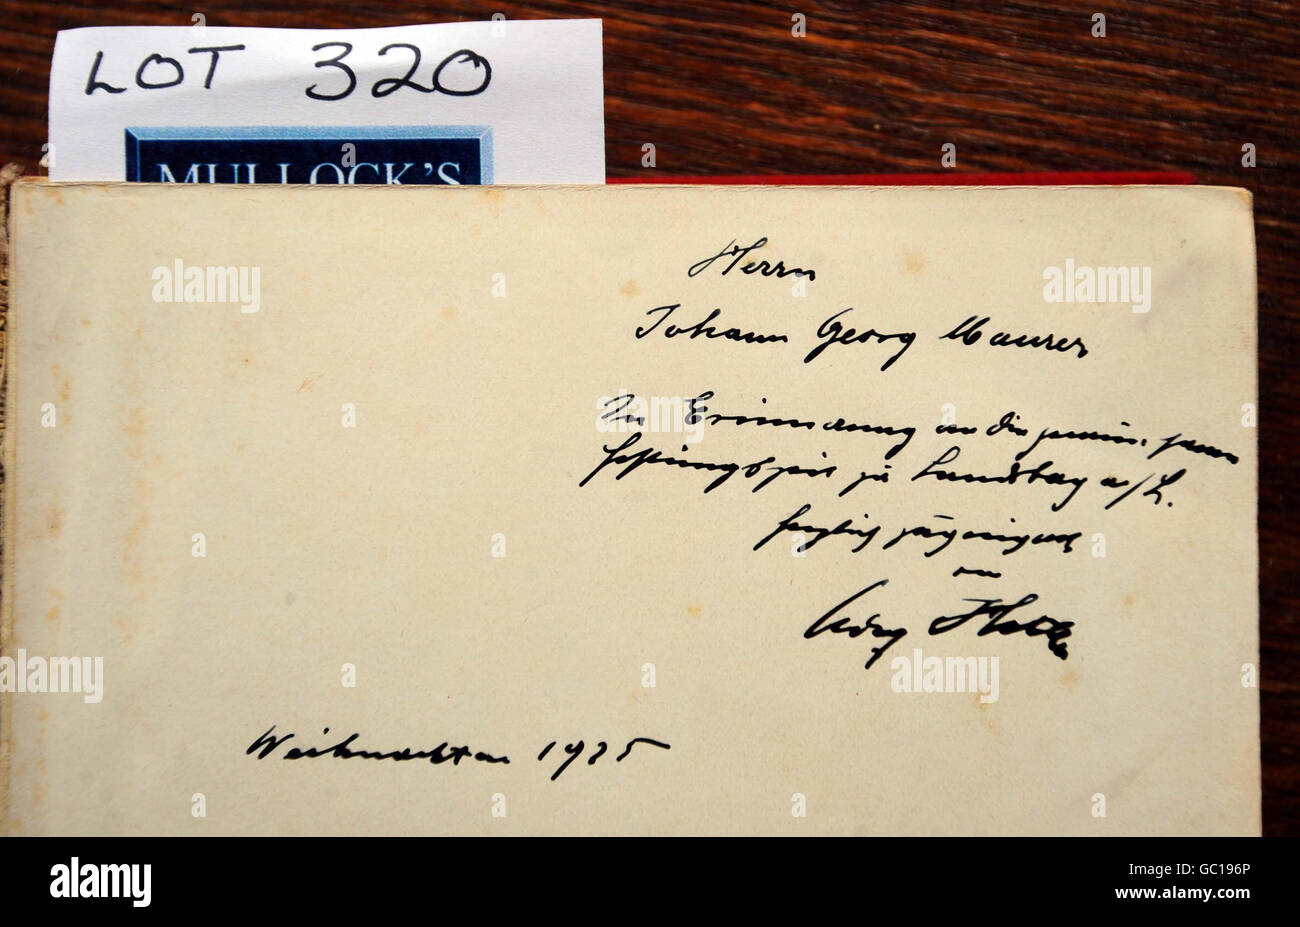 LOT 320
MULLOCK'S
Herrn
Johann Georg Maurer
Zur Erinnerung an die gemeinsame
Festungszeit zu Landsberg a/L.
herzlich zugeeignet
von
Adolf Hitler
Weihnachten 1925
alamy stock photo
alamy
GC196P
www.alamy.com